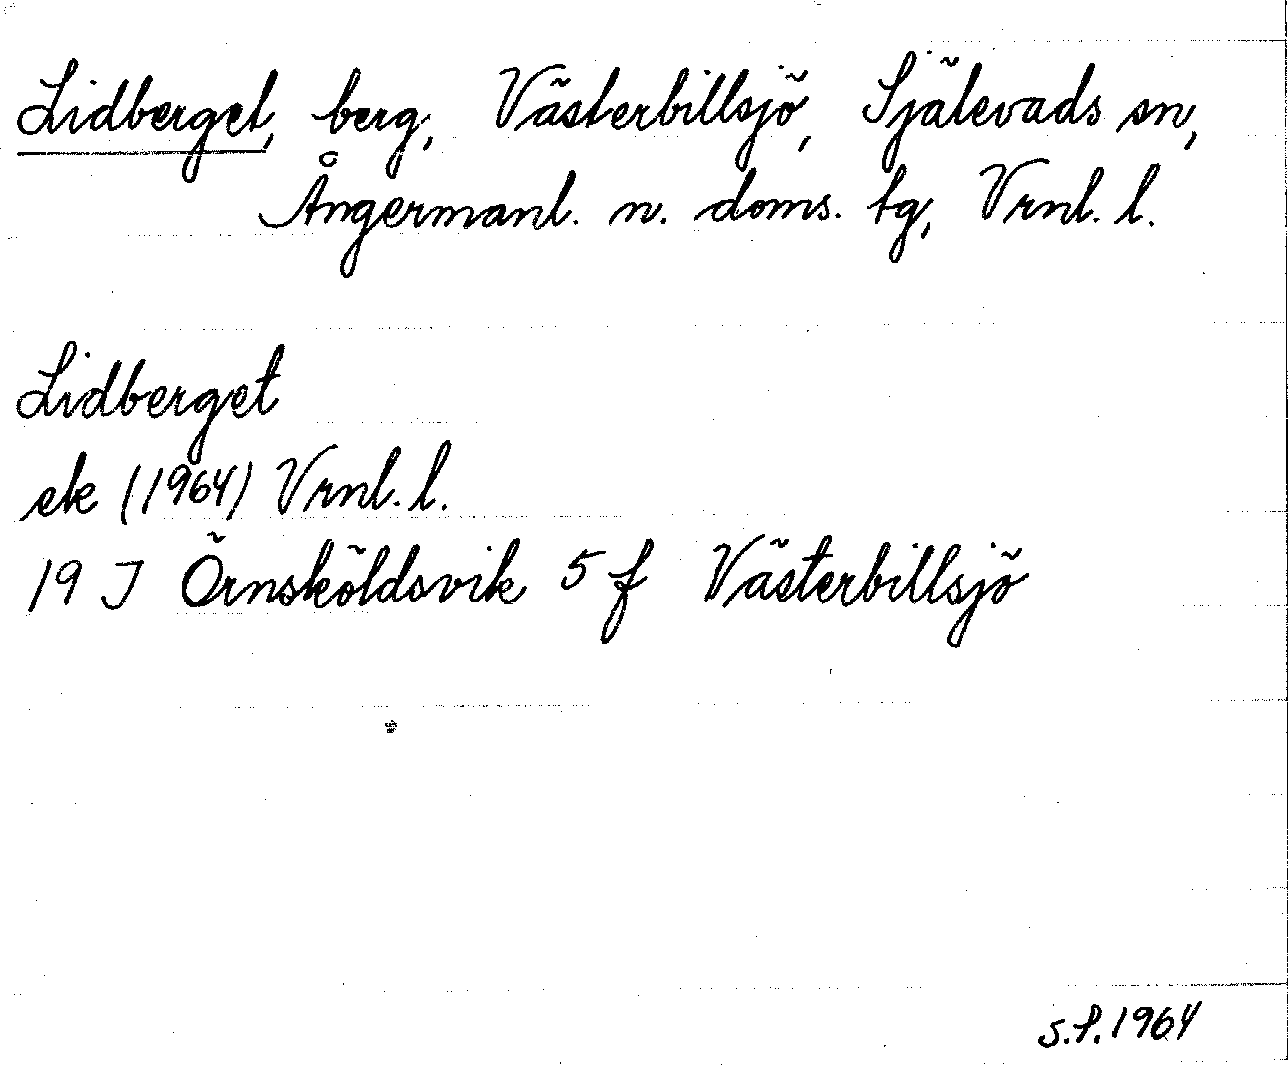 Lidberget, berg, Västerbillsjö, Själevads sn,
Ångermanl. n. doms. tg, Vrnl. l.
Lidberget
ek (1964) Vrnl. l.
19 J Örnsköldsvik 5 f Västerbillsjö
s.f. 1964